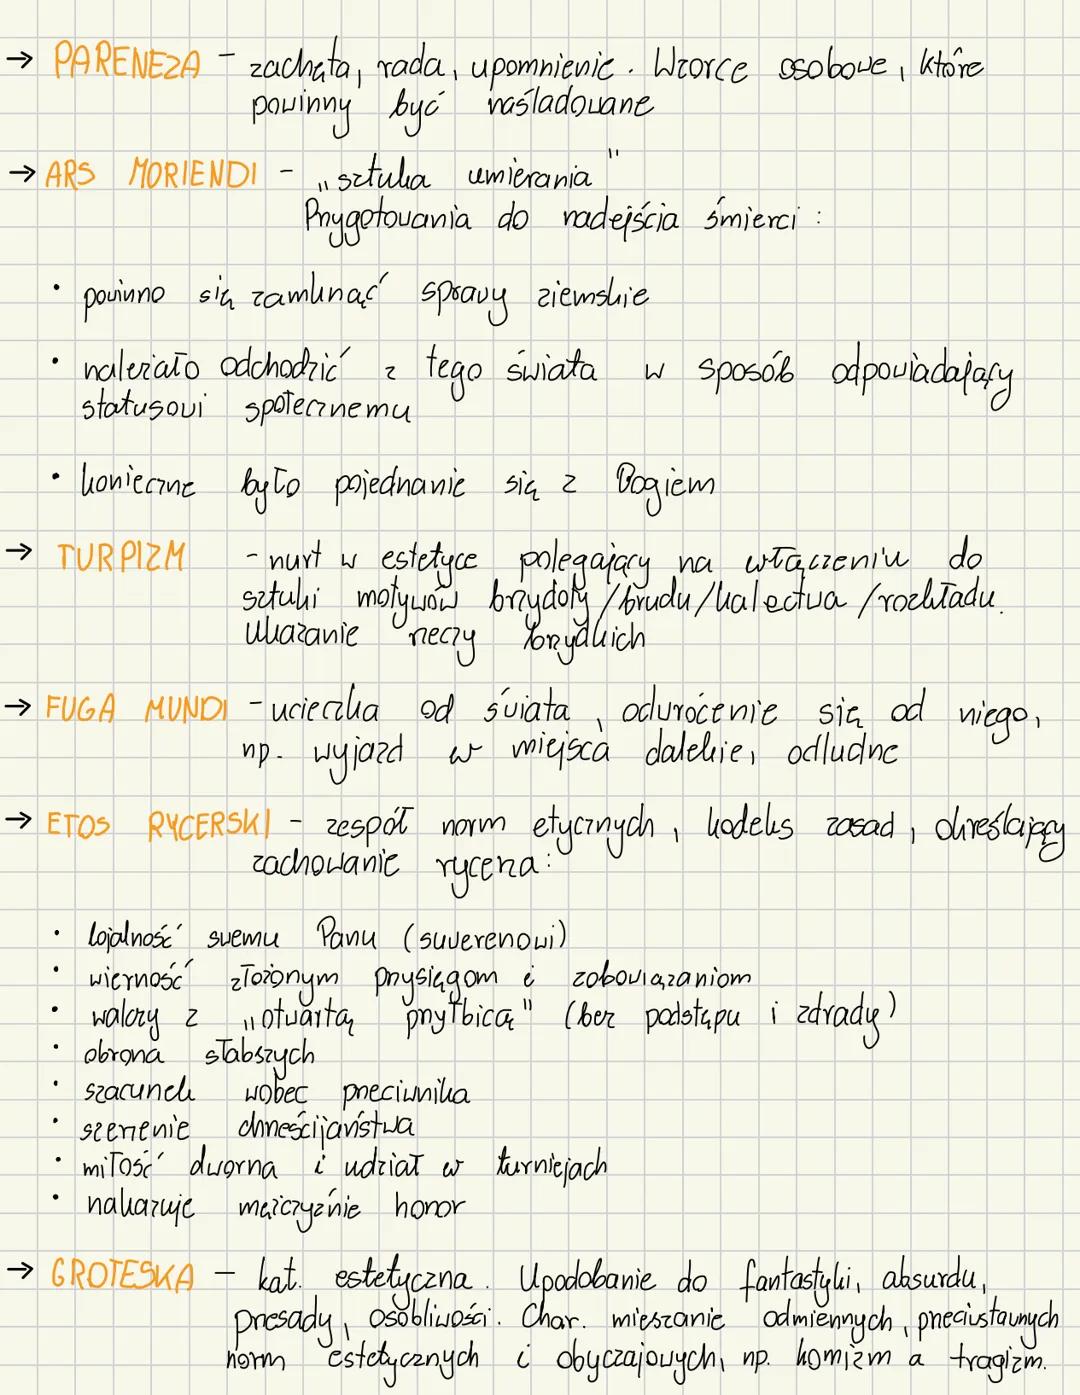 → PARENEZA - zachęta, rada, upomnienie. Wzorce osobowe, które
powinny być naśladowane
→ ARS MORIENDI - „sztuka umierania"
Przygotowania do nadejścia śmierci:
• powinno się zamknąć sprawy ziemskie
• należało odchodzić z tego świata w sposób odpowiadający
statusowi społecznemu
• konieczne było pojednanie się z Bogiem
→ TURPIZM - nurt w estetyce polegający na włączeniu do
sztuki motywów brzydoty/brudu/kalectwa/rozkładu.
Ukazanie rzeczy brzydkich
→ FUGA MUNDI - ucieczka od świata, odwrócenie się od niego,
np. wyjazd w miejsca dalekie, odludne
→ ETOS RYCERSKI - zespół norm etycznych, kodeks zasad, określający
zachowanie rycerza:
• lojalność swemu Panu (suwerenowi)
• wierność złożonym przysięgom i zobowiązaniom
• walczy z „otwartą przyłbicą" (bez podstępu i zdrady)
• obrona słabszych
• szacunek wobec przeciwnika
• szerzenie chrześcijaństwa
• miłość dworna i udział w turniejach
• nakazuje mężczyźnie honor
→ GROTESKA - kat. estetyczna. Upodobanie do fantastyki, absurdu,
przesady, osobliwości. Char. mieszanie odmiennych, przeciwstawnych
norm estetycznych i obyczajowych, np. komizm a tragizm.